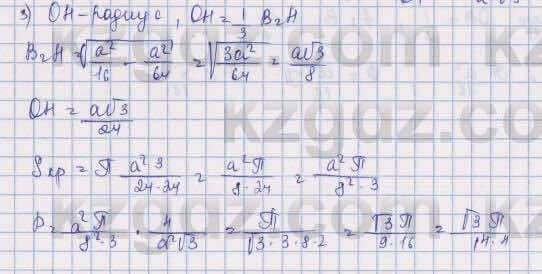 3) OH - радиус, OH = 1/3 B₂H
B₂H = √(a²/16 - a²/64) = √(3a²/64) = a√3/8
OH = a√3/24
Sкр = π a² 3/(24·24) = a²π/(8·24) = a²π/(8²·3)
P = a²π/(8²·3) · 4/(a²√3) = π/(√3·3·8·2) = √3π/(9·16) = √3π/(14·4)
kzgaz.com